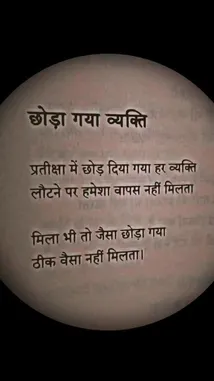 छोड़ा गया व्यक्ति
प्रतीक्षा में छोड़ दिया गया हर व्यक्ति
लौटने पर हमेशा वापस नहीं मिलता
मिला भी तो जैसा छोड़ा गया
ठीक वैसा नहीं मिलता।